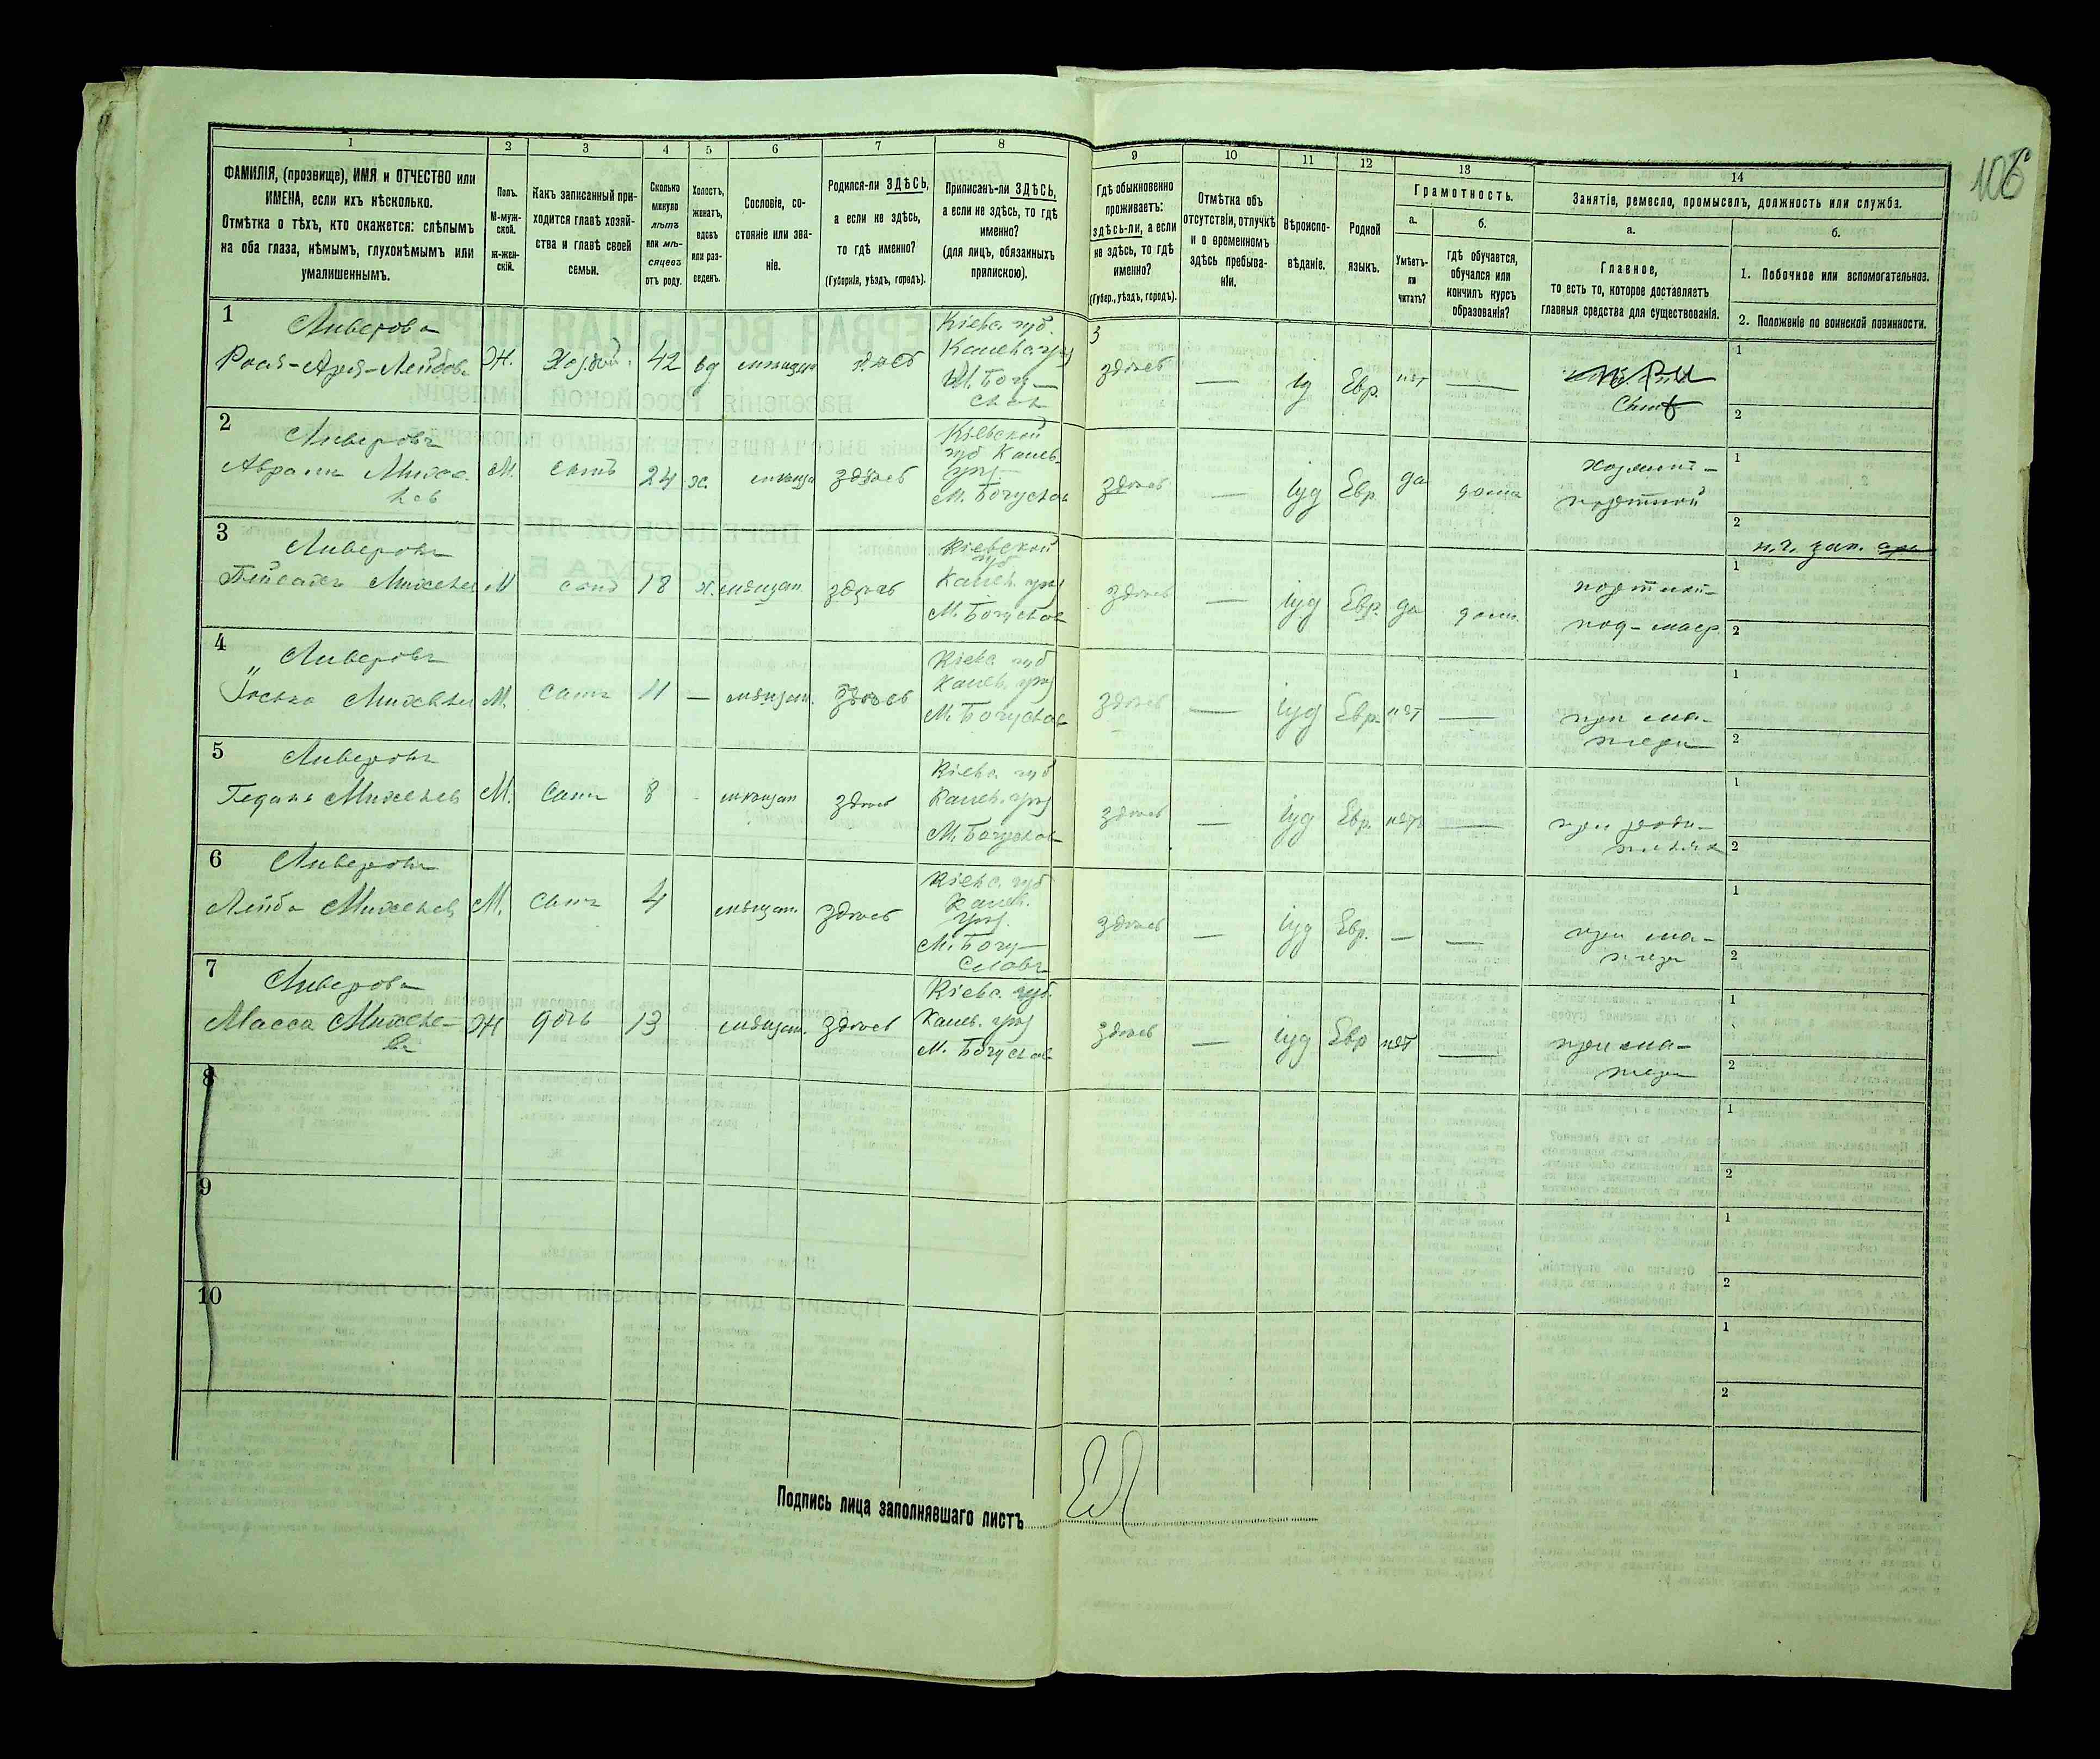 106
1
2
3
4
5
6
7
8
9
10
11
12
13
14
ФАМИЛІЯ, (прозвище), ИМЯ и ОТЧЕСТВО или
ИМЕНА, если ихъ нѣсколько.
Отмѣтка о тѣхъ, кто окажется: слѣпымъ
на оба глаза, нѣмымъ, глухонѣмымъ или
умалишеннымъ.
Полъ.
М-муж-
ской.
Ж-жен-
скій.
Какъ записанный при-
ходится главѣ хозяй-
ства и главѣ своей
семьи.
Сколько
минуло
лѣтъ
или мѣ-
сяцевъ
отъ роду.
Холостъ,
женатъ,
вдовъ
или раз-
веденъ.
Сословіе, со-
стояніе или зва-
ніе.
Родился-ли ЗДѢСЬ,
а если не здѣсь,
то гдѣ именно?
(Губернія, уѣздъ, городъ).
Приписанъ-ли ЗДѢСЬ,
а если не здѣсь, то гдѣ
именно?
(для лицъ, обязанныхъ
припискою).
Гдѣ обыкновенно
проживаетъ:
здѣсь-ли, а если
не здѣсь, то гдѣ
именно?
(Губер., уѣздъ, городъ).
Отмѣтка объ
отсутствіи, отлучкѣ
и о временномъ
здѣсь пребыва-
ніи.
Вѣроиспо-
вѣданіе.
Родной
языкъ.
Грамотность.
а.
Умѣетъ-
ли
читать?
б.
Гдѣ обучается,
обучался или
кончилъ курсъ
образованія?
Занятіе, ремесло, промыселъ, должность или служба.
а.
Главное,
то есть то, которое доставляетъ
главныя средства для существованія.
б.
1. Побочное или вспомогательное.
2. Положеніе по воинской повинности.
1
Ливерова
Ж.
42
вд
Кіевс. губ.
М. Богу-
здѣсь
—
Евр.
нѣт
—
1
2
2
Ливеровъ
М.
сынъ
24
х.
здѣсь
Кіевской
губ Канев.
М. Богуслав
здѣсь
—
іуд
Евр.
да
дома
1
2
3
Ливеровъ
М
сынъ
18
х.
мѣщан
здѣсь
Кіевской
губ
Канев. уѣзд
М. Богуслав
здѣсь
—
іуд
Евр.
да
дома
1
2
4
Ливеровъ
Іоська
М.
сынъ
11
—
мѣщан.
здѣсь
Кіевс. губ
Канев. уѣзд
М. Богуслав
здѣсь
—
іуд
Евр.
нѣт
—
при ма-
тери
1
2
5
Ливеровъ
М.
сынъ
8
мѣщан
здѣсь
Кіевс. губ
Канев. уѣзд
М. Богуслав
здѣсь
—
іуд
Евр.
нѣтъ
—
при роди-
теляхъ
1
2
6
Ливеровъ
Лейба
М.
сынъ
4
мѣщан.
здѣсь
Кіевс. губ
Канев.
уѣзд.
М. Богу-
славъ
здѣсь
—
іуд
Евр.
—
—
при ма-
тери
1
2
7
Ливерова
Масса
Ж
дочь
13
мѣщан.
здѣсь
Кіевс. губ.
Канев. уѣзд
М. Богуслав
здѣсь
—
іуд
Евр
нѣт
—
при ма-
тери
1
2
8
1
2
9
1
2
10
1
2
Подпись лица заполнявшаго листъ